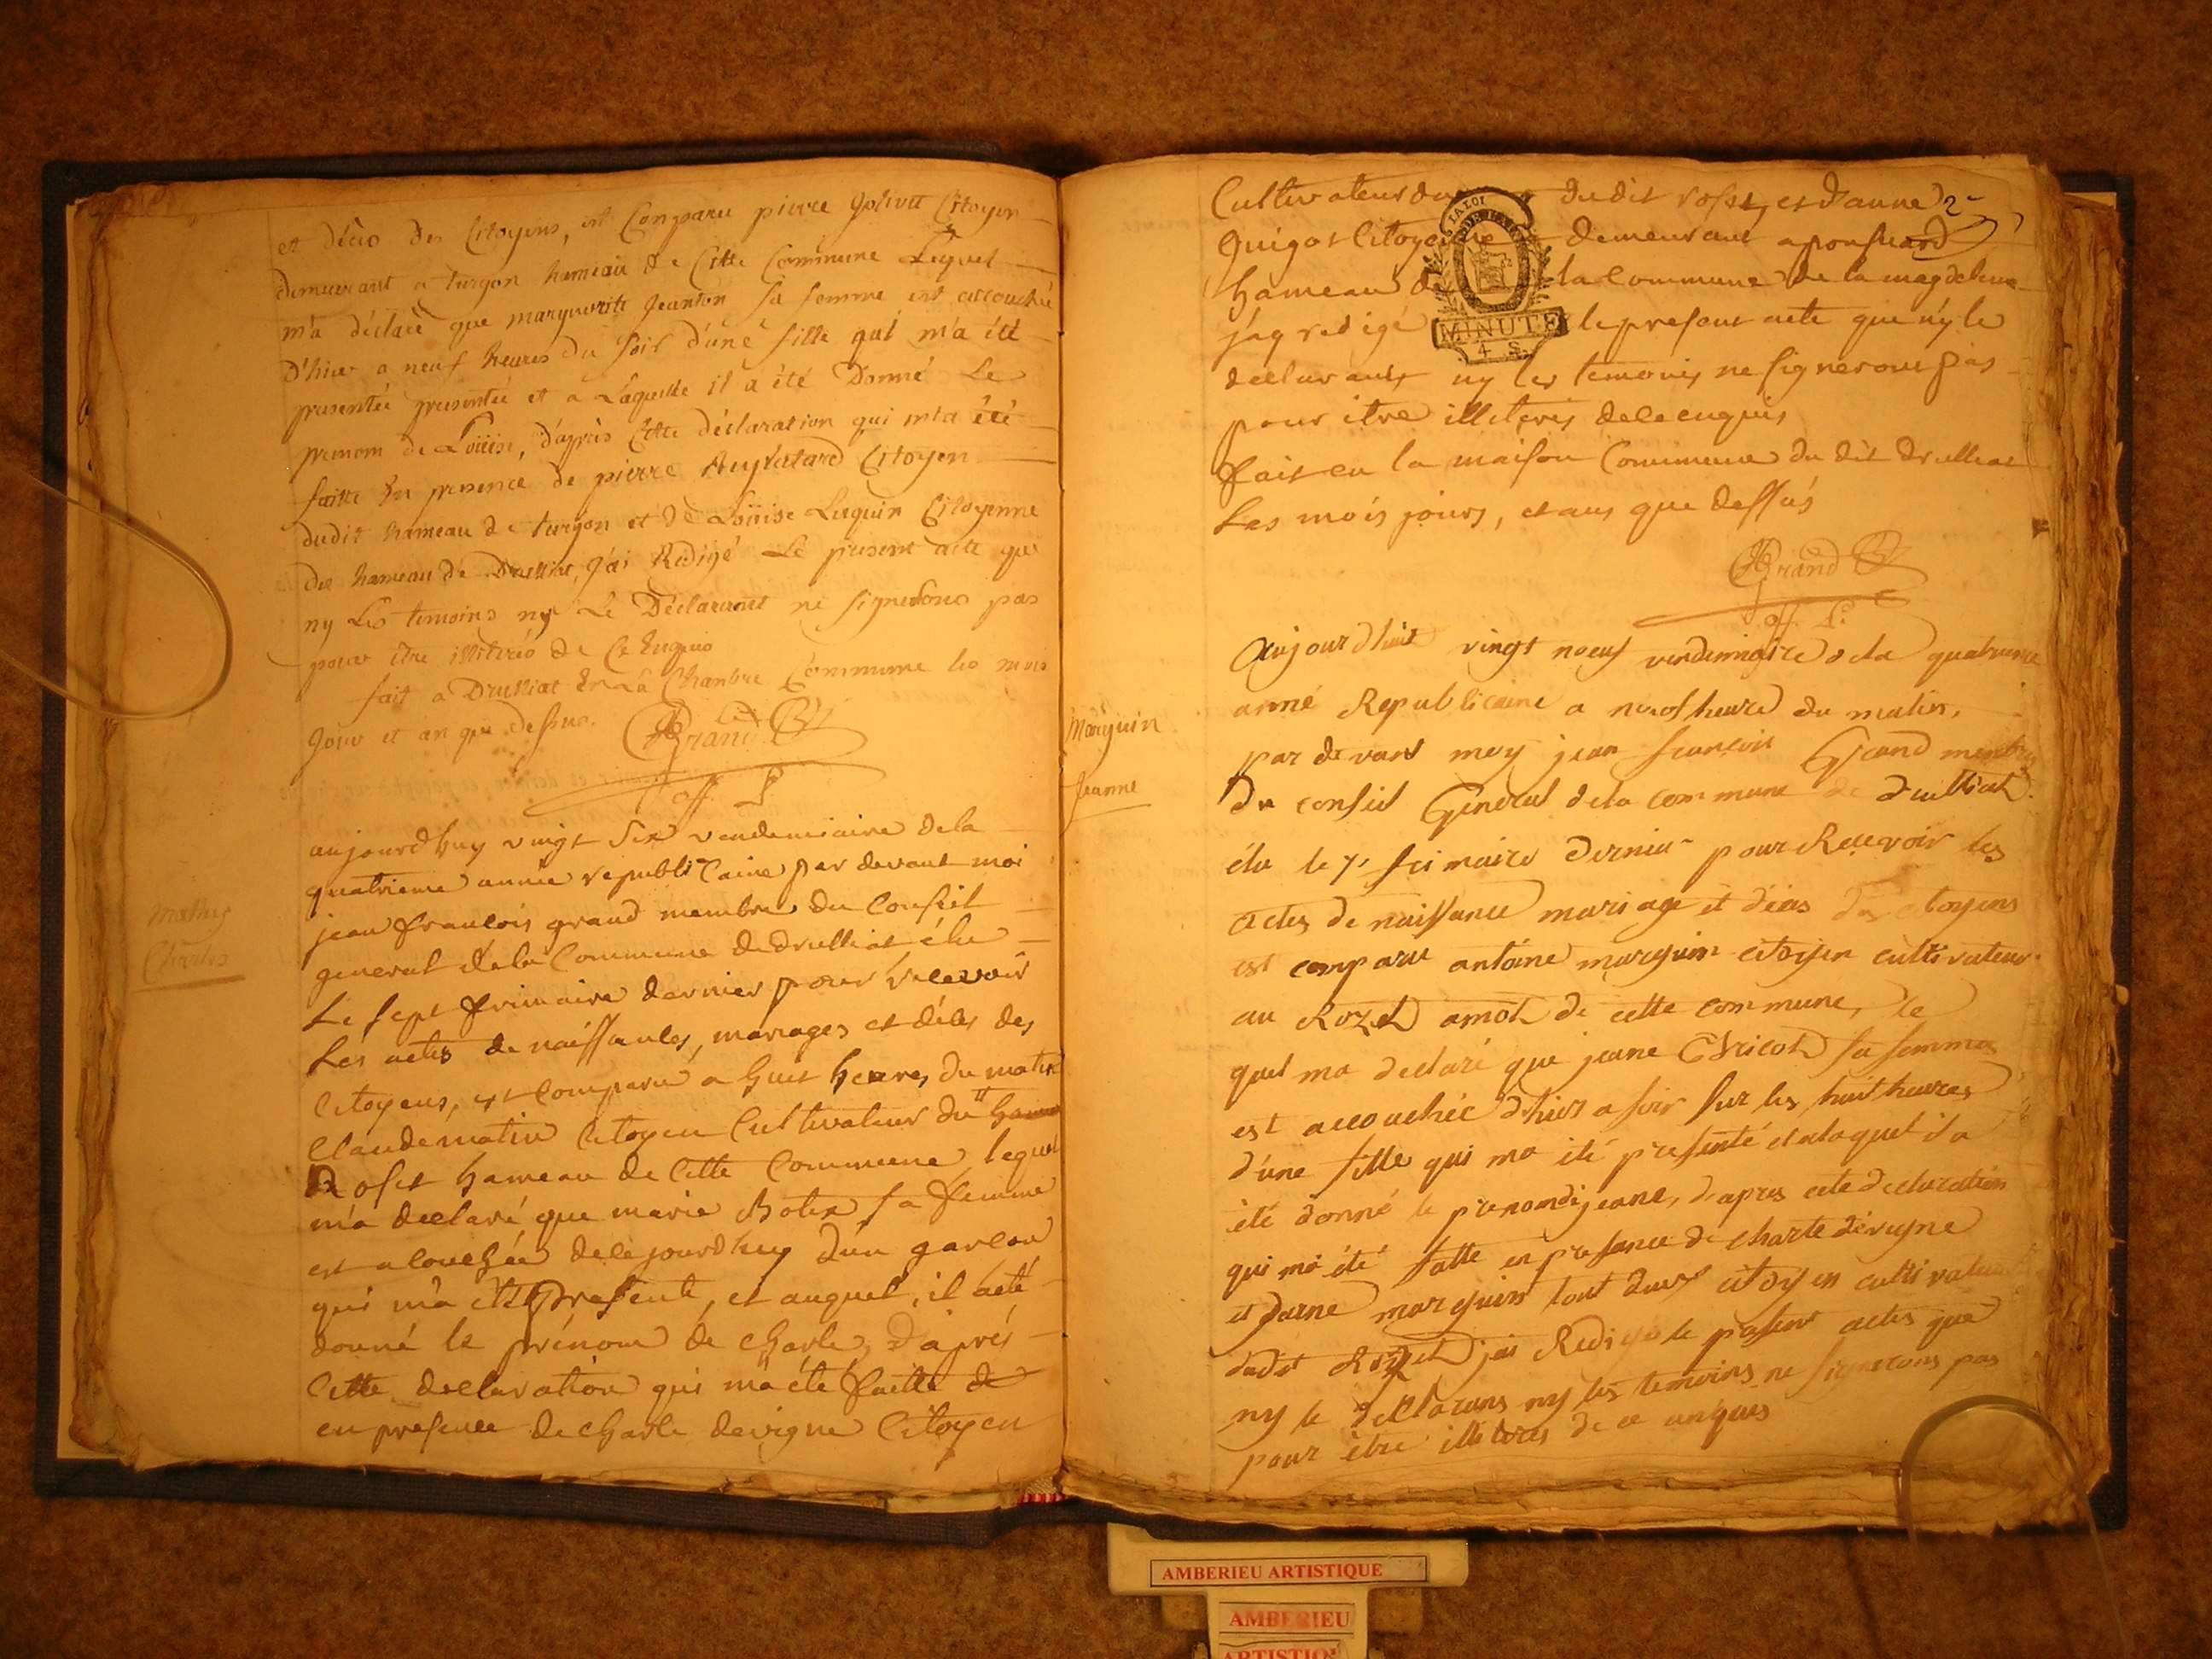 et décès des Citoyens, est Comparu pierre Jolivet Citoyen
demeurant a turgon hameau de Cette Commune Lequel
m'a déclaré que marguerite Jeanton sa femme est accouchée
D'hier a neuf heures du soir d'une fille qui m'a été
presentée presentée et a Laquelle il a été Donné Le
prenom de Loüise, d'après Cette déclaration qui m'a été
faitte En presence de pierre Citoyen
dudit hameau de turgon et de Loüise Luquin Citoyenne
du hameau de Druillat, J'ai Redigé Le present acte que
ny Les temoins ny Le Déclarant ne signerons pas
pour être illitérés de Ce Enquis
fait a Druillat En La Chambre Commune les mois
Jour et an que dessus. Grand
off. P.
aujourdhuy vingt six vendemiaire dela
quatrieme année republicaine par devant moi
jean françois grand membre du Conseil
general dela Commune de druilliat élu
Le sept frimaire dernier pour recevoir
Les actes de naissances, mariages et décès des
Citoyens, est comparu a huit heures du matin
Claude matin Citoyen Cultivateur du
Roset hameau de Cette Commune lequel
m'a declaré que marie sa femme
est acouchée de cejourdhuy d'un garcon
qui m'a été presenté, et auquel, il a eté
donné le prénom de charle, d'après
Cette declaration qui m'a été faitte de
en presence de charle devigne Citoyen
Mathy
Charles
Cultivateur du dudit roset, et d'anne 2
Guigot Citoyenne demeurant a ponsuard
hameau de la commune de la magdelene
j'ay redigé le present acte que ny le
declarant ny les temoins ne signerons pas
pour être illiterés de ce enquis
fait en la maison Commune du dit druillat
Les mois jours, et ans que dessus
LA LOI
MINUTE
4 S.
Grand
off. P.
Marguin
Jeanne
aujourdhuit vingt noeuf vendemiaire dela quatrieme
anné Republicaine a neuf heure du matin,
par devant moy jean françois Grand membre
Du conseil General dela commune de druilliat
élu le 7 frimaire dernier pour Recevoir les
actes de naissance mariage et décès des citoyens
est comparu antoine marguin citoyen cultivateur
au Rozet amot de cette commune, le
quel ma declaré que jeane Chicot sa femme
est accouchée d'hier a soir sur les huit heures
d'une fille qui ma été presenté et alaquel il a
été donné le prenom de jeane, d'apres cete declaration
qui ma été fatte en presance de charle dévigne
et marguin tout deux citoyen cultivateur
dudit Rozet jai Redigé le present actes que
ny le declarans ny les temoins ne signerons pas
pour être illitéres de ce anques
AMBERIEU ARTISTIQUE
AMBERIEU
ARTISTIQUE